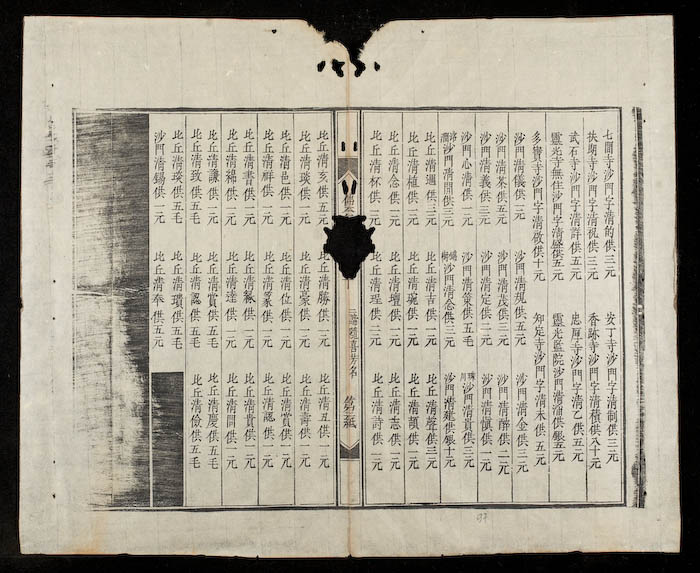 七爾寺沙門字清的供三元　安丁寺沙門字清制供三元
扶期寺沙門字清視供三元　香跡寺沙門字清積供八十元
武石寺沙門字清詳供五元　忠厚寺沙門字清乙供五元
靈光寺無住沙門字清盛供五元　靈光監院沙門清涌供銀五元
多寶寺沙門字清敬供十元　知足寺沙門字清禾供五元
沙門清儀供二元　沙門清現供五元　沙門清金供三元
沙門清茶供五元　沙門清茂供三元　沙門清醉供二元
沙門清義供三元　沙門清定供二元　沙門清愼供一元
沙門心清供一元　沙門清策供五毛　沙門清貢供三元
沙門清問供三元　沙門清念供三元　沙門清建供銀十元
比丘清迥供三元　比丘清吉供二元　比丘清聲供三元
比丘清植供二元　比丘清琬供一元　比丘清韻供一元
比丘清念供二元　比丘清壇供二元　比丘清志供三元
比丘清杯供二元　比丘清珵供二元　比丘清詩供二元
論題喜芳名
比丘清亥供五元　比丘清勝供三元　比丘清丑供一元
比丘清琰供二元　比丘清豪供二元　比丘清壽供二元
比丘清邑供一元　比丘清位供一元　比丘清賞供一元
比丘清祥供一元　比丘清篆供一元　比丘清認供一元
比丘清書供一元　比丘清供一元　比丘清貴供一元
比丘清綿供一元　比丘清達供一元　比丘清問供一元
比丘清謙供一元　比丘清賞供五毛
比丘清致供五毛　比丘清認供五毛　比丘清慶供五毛
比丘清瑛供五毛　比丘清瓊供五毛　比丘清儉供五毛
沙門清錫供五元　比丘清奉供五元
97